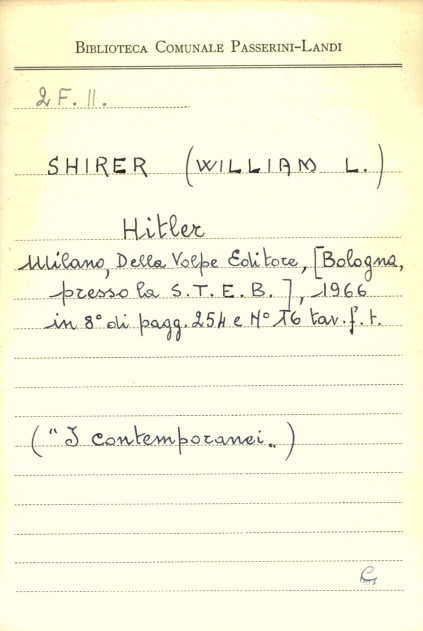 BIBLIOTECA COMUNALE PASSERINI-LANDI
2 F. 11.
SHIRER (WILLIAM L.)
Hitler
Milano, Della Volpe Editore, [Bologna,
presso la S.T.E.B.], 1966
in 8° di pagg. 254 e N° 16 tav. f. t.
("I contemporanei„)